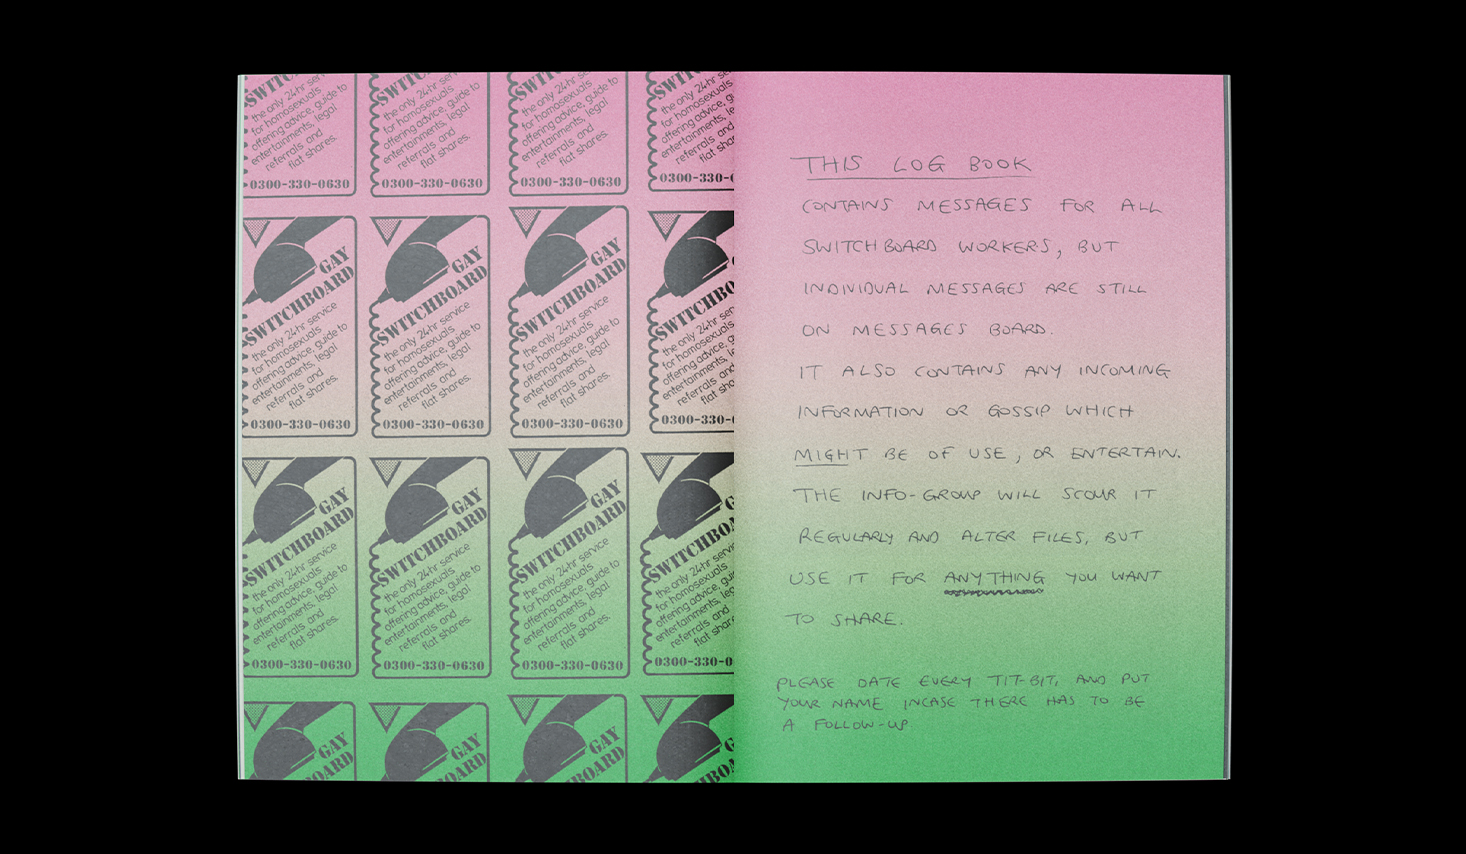 SWITC
the only 24hr serv
for homosexuals
offering advice, guide to
entertainments, legal
referrals and
flat shares.
0300-330-0630
SWITCH
the only 24hr service
for homosexuals
offering advice, guide to
entertainments, legal
referrals and
flat shares.
0300-330-0630
SWITCH
the only 24hr service
for homosexuals
offering advice, guide to
entertainments, legal
referrals and
flat shares.
0300-330-0630
SWITCH
the only 24hr
for homosexuals
offering advice, g
entertainments, le
referrals and
flat sha
0300-330-0
GAY
SWITCHBOARD
the only 24hr service
for homosexuals
offering advice, guide to
entertainments, legal
referrals and
flat shares.
0300-330-0630
GAY
SWITCHBOARD
the only 24hr service
for homosexuals
offering advice, guide to
entertainments, legal
referrals and
flat shares.
0300-330-0630
GAY
SWITCHBOARD
the only 24hr service
for homosexuals
offering advice, guide to
entertainments, legal
referrals and
flat shares.
0300-330-0630
G
SWITCHBO
the only 24hr
for homosexuals
offering advice, gu
entertainments, le
referrals and
flat sha
0300-330-0
GAY
SWITCHBOARD
the only 24hr service
for homosexuals
offering advice, guide to
entertainments, legal
referrals and
flat shares.
0300-330-0630
GAY
SWITCHBOARD
the only 24hr service
for homosexuals
offering advice, guide to
entertainments, legal
referrals and
flat shares.
0300-330-0630
GAY
SWITCHBOARD
the only 24hr service
for homosexuals
offering advice, guide to
entertainments, legal
referrals and
flat shares.
0300-330-0630
G
SWITCHBOA
the only 24hr
for homosexuals
offering advice, gui
entertainments, le
referrals and
flat shar
0300-330-0
GAY
BOARD
GAY
BOARD
GAY
BOARD
G
HBOA
THIS LOG BOOK
CONTAINS MESSAGES FOR ALL
SWITCHBOARD WORKERS, BUT
INDIVIDUAL MESSAGES ARE STILL
ON MESSAGES BOARD.
IT ALSO CONTAINS ANY INCOMING
INFORMATION OR GOSSIP WHICH
MIGHT BE OF USE, OR ENTERTAIN.
THE INFO-GROUP WILL SCOUR IT
REGULARLY AND ALTER FILES, BUT
USE IT FOR ANYTHING YOU WANT
TO SHARE.
PLEASE DATE EVERY TIT-BIT, AND PUT
YOUR NAME INCASE THERE HAS TO BE
A FOLLOW-UP